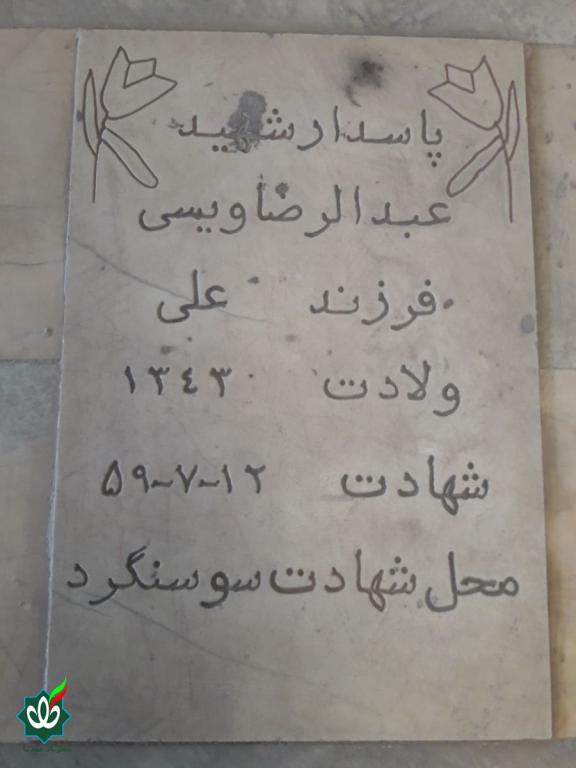 پاسدار شهید
عبدالرضا ویسی
فرزند علی
ولادت ۱۳۴۳
شهادت ۱۲-۷-۵۹
محل شهادت سوسنگرد